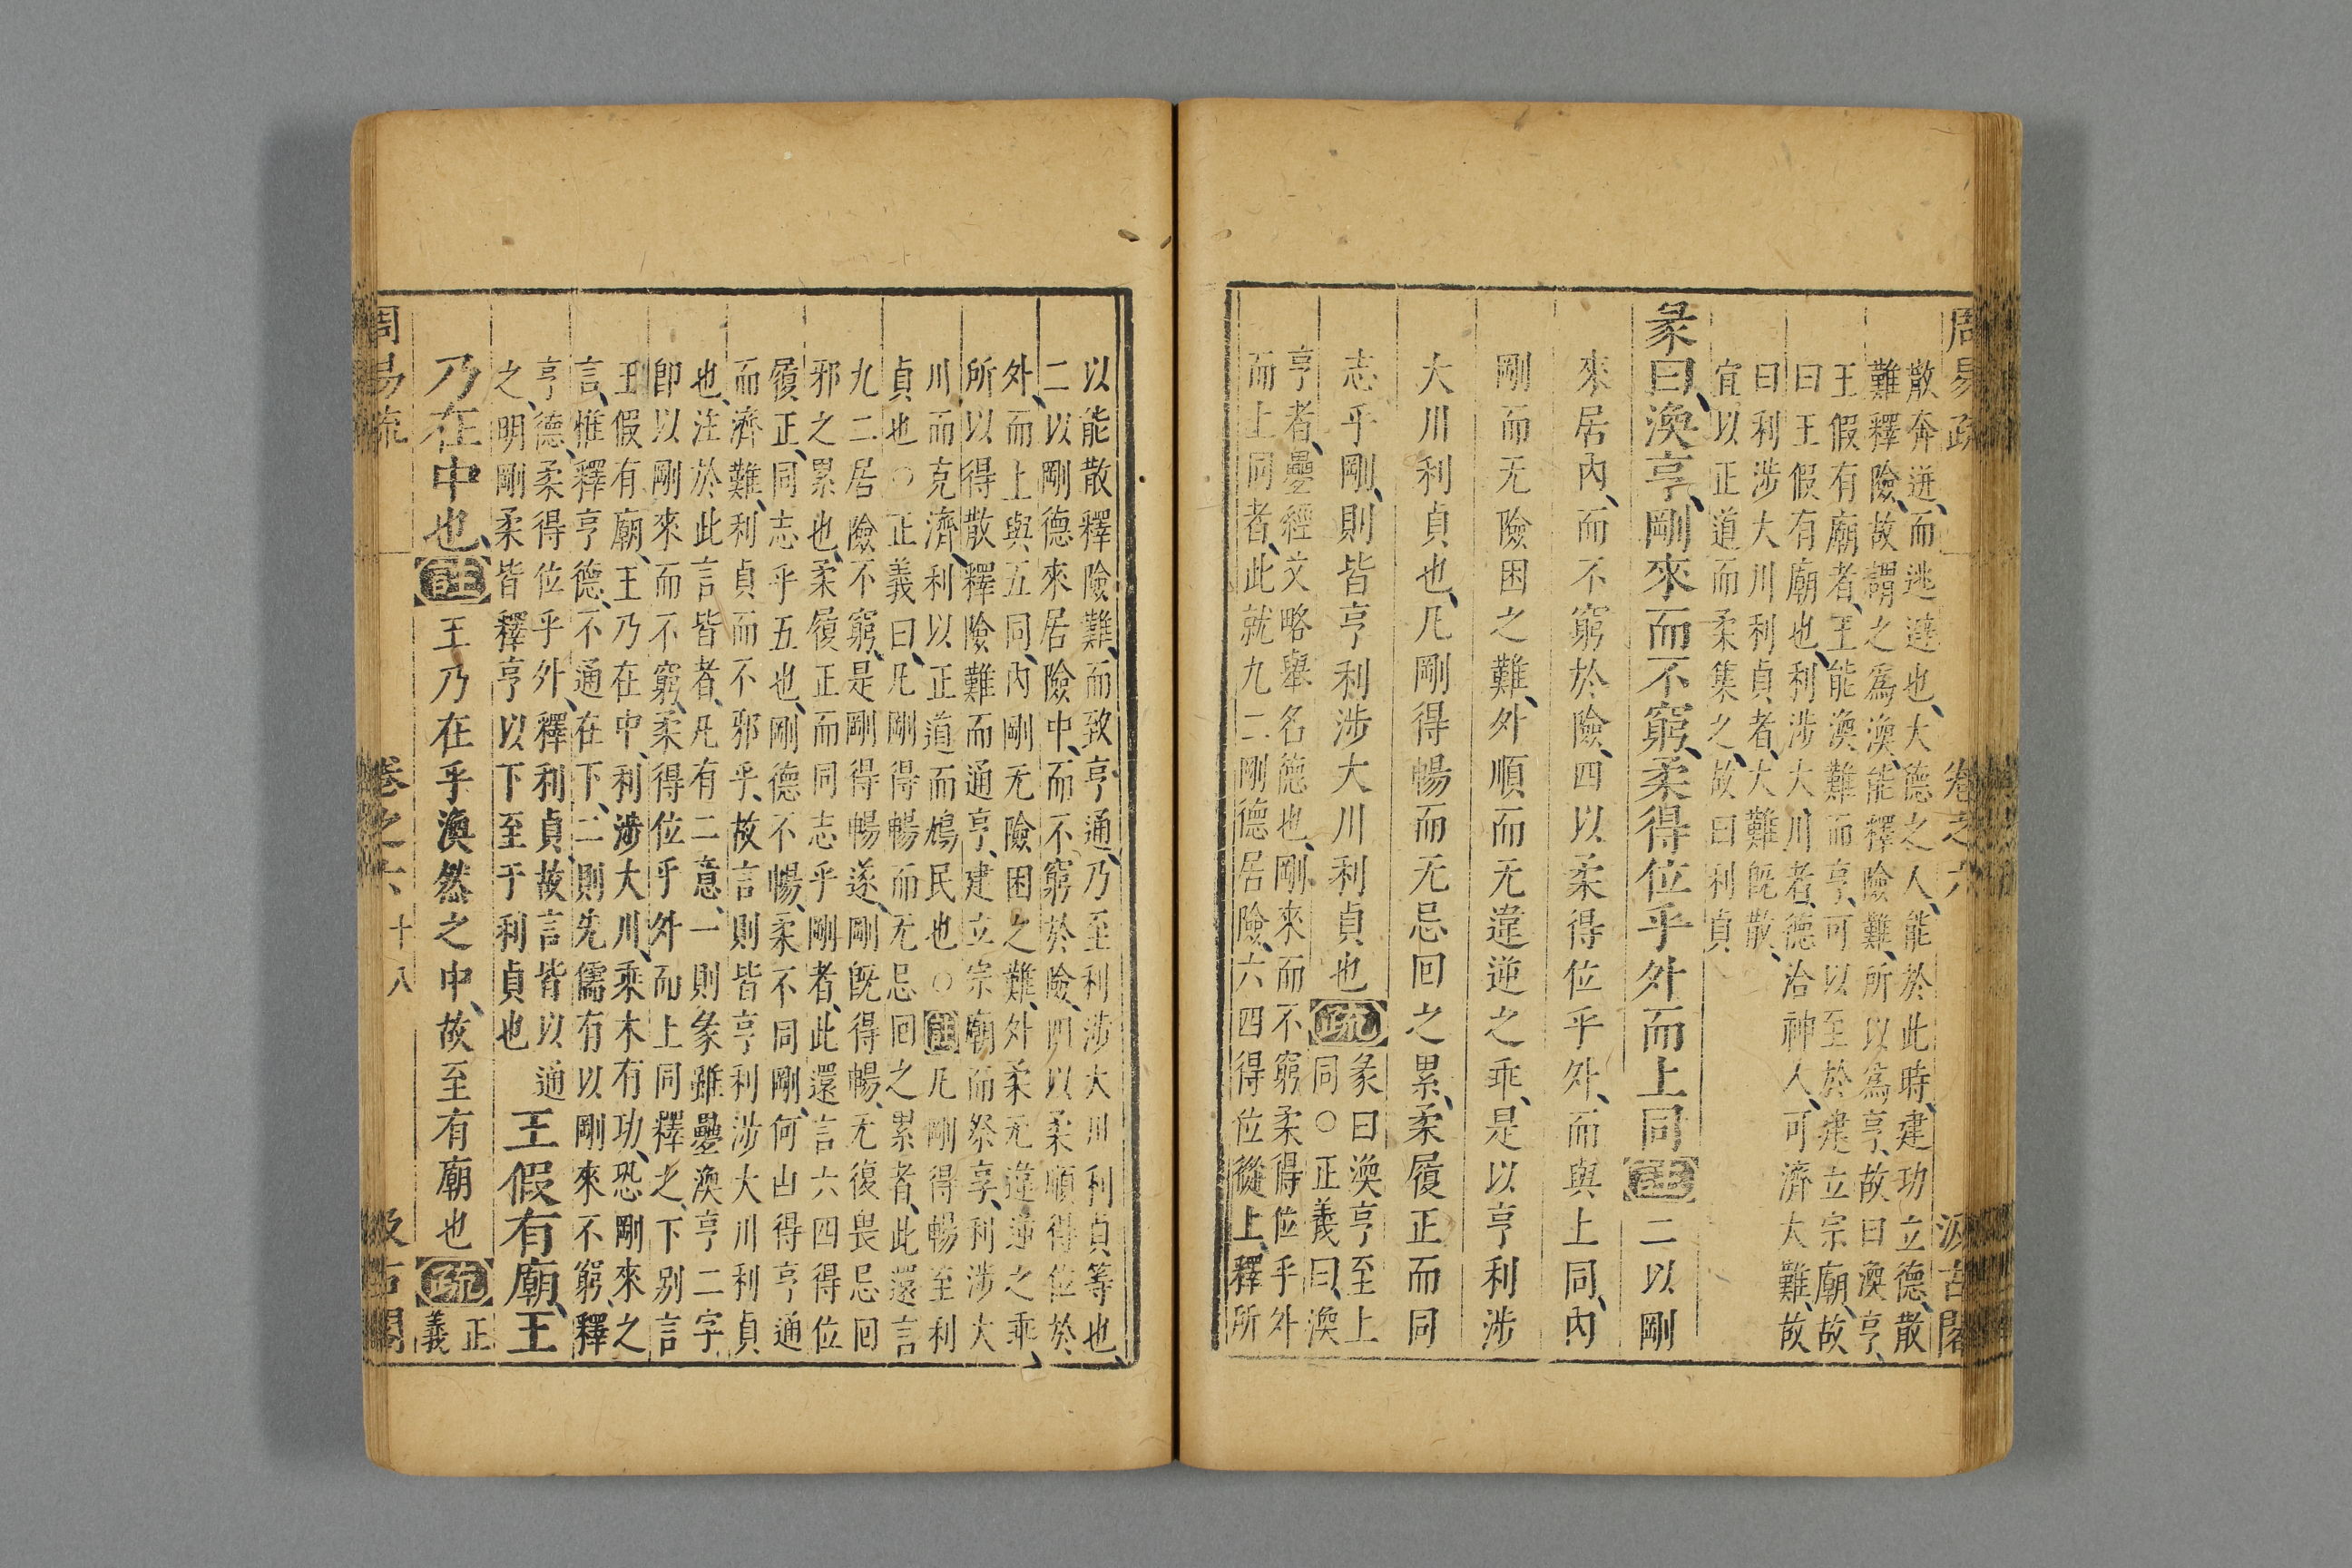 周易疏 卷之六 汲古閣
散奔迸、而逃遁也、大德之人、能於此時、建功立德、散
難釋險、故謂之爲渙、能釋險難、所以爲亨、故曰渙亨、
王假有廟者、王能渙難而亨、可以至於建立宗廟、故
曰王假有廟也、利涉大川者、德洽神人、可濟大難、故
曰利涉大川利貞者、大難既散、
宜以正道而柔集之、故曰利貞
彖曰、渙亨、剛來而不窮、柔得位乎外而上同 註 二以剛
來居內、而不窮於險、四以柔得位乎外、而與上同、內
剛而无險困之難、外順而无違逆之乖、是以亨利涉
大川利貞也、凡剛得暢而无忌回之累、柔履正而同
志乎剛、則皆亨利涉大川利貞也 疏 彖曰渙亨至上
同○正義曰、渙
亨者、疊經文略舉名德也、剛來而不窮柔得位乎外
而上同者、此就九二剛德居險、六四得位從上、釋所
以能散釋險難、而致亨通、乃至利涉大川利貞等也、
二、以剛德來居險中、而不窮於險、四以柔順得位於
外、而上與五同、內剛无險困之難、外柔无違逆之乖、
所以得散釋險難而通亨、建立宗廟而祭享、利涉大
川而克濟、利以正道而鳩民也○註凡剛得暢至利
貞也○正義曰、凡剛得暢而无忌回之累者、此還言
九二居險不窮、是剛得暢遂、剛既得暢、无復畏忌回
邪之累也、柔履正而同志乎剛者、此還言六四得位
履正、同志乎五也、剛德不暢、柔不同剛、何由得亨通
而濟難、利貞而不邪乎、故言則皆亨利涉大川利貞
也、注於此言皆者、凡有二意、一則彖雖疊渙亨二字
即以剛來而不窮、柔得位乎外而上同釋之、下別言
王假有廟、王乃在中、利涉大川、乘木有功、恐剛來之
言、惟釋亨德、不通在下、二則先儒有以剛來不窮、釋
亨德、柔得位乎外、釋利貞、故言皆以通
之、明剛柔皆釋亨以下至于利貞也 王假有廟、王
乃在中也、註 王乃在乎渙然之中、故至有廟也 疏 正
義
周易疏 卷之六 十八 汲古閣